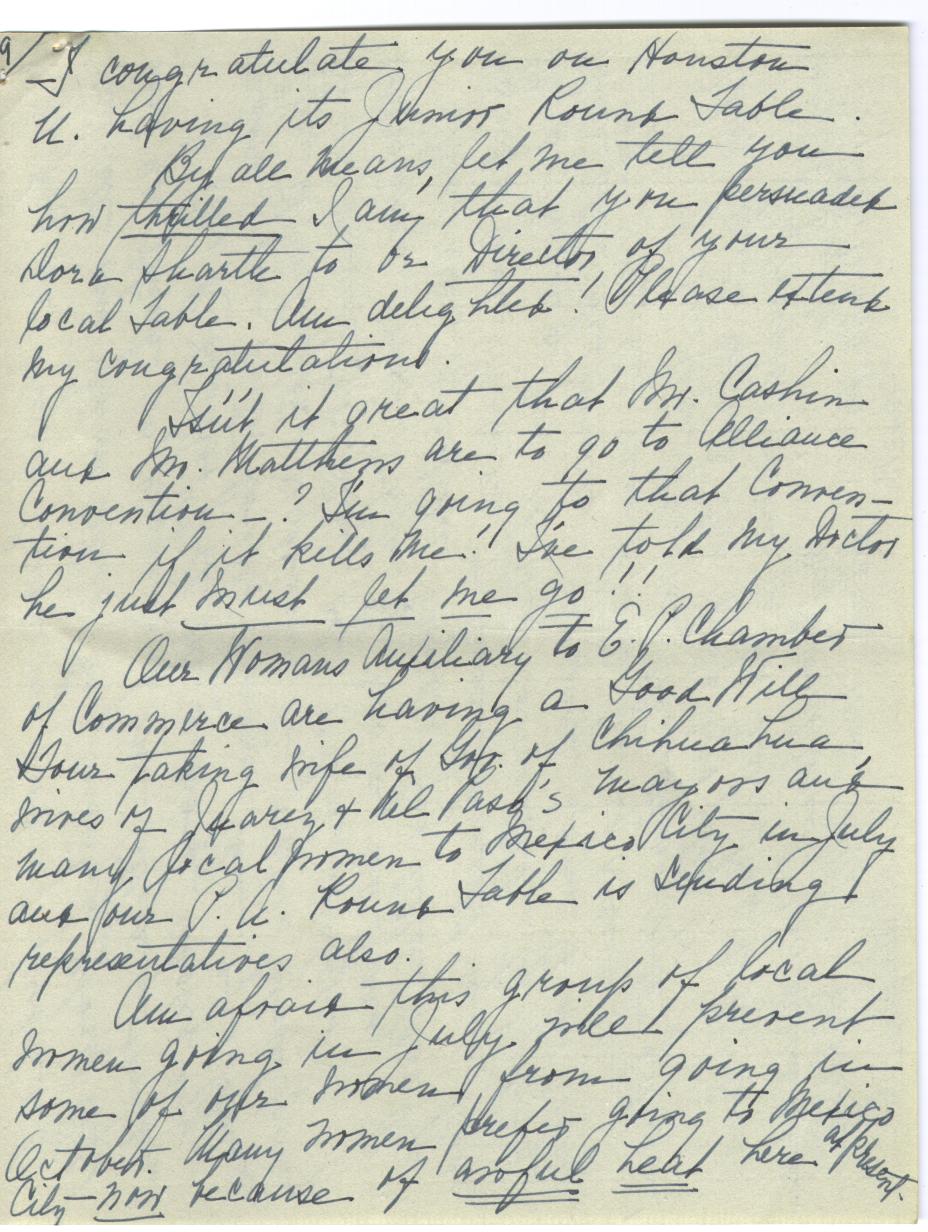 9/
- I congratulate you on Houston
U. having its Junior Round Table.
By all means, let me tell you
how thrilled I am that you persuaded
Dora to be Director of your
local Table. Am delighted! Please extend
my congratulations.
Isn't it great that Mr. Cashin
and Mr. Matthews are to go to Alliance
Convention - ? I'm going to that Conven-
tion if it kills me! I've told my Doctor
he just must let me go!!
Our Womans Auxiliary to E. P. Chamber
of Commerce are having a Good Will
Tour taking wife of Gov. of Chihuahua,
wives of Juarez & El Paso's mayors and
many local women to Mexico City in July
and our P. A. Round Table is sending
representatives also.
Am afraid this group of local
women going in July will prevent
some of our women from going in
October. Many women prefer going to Mexico
City - now because of awful heat here at present.